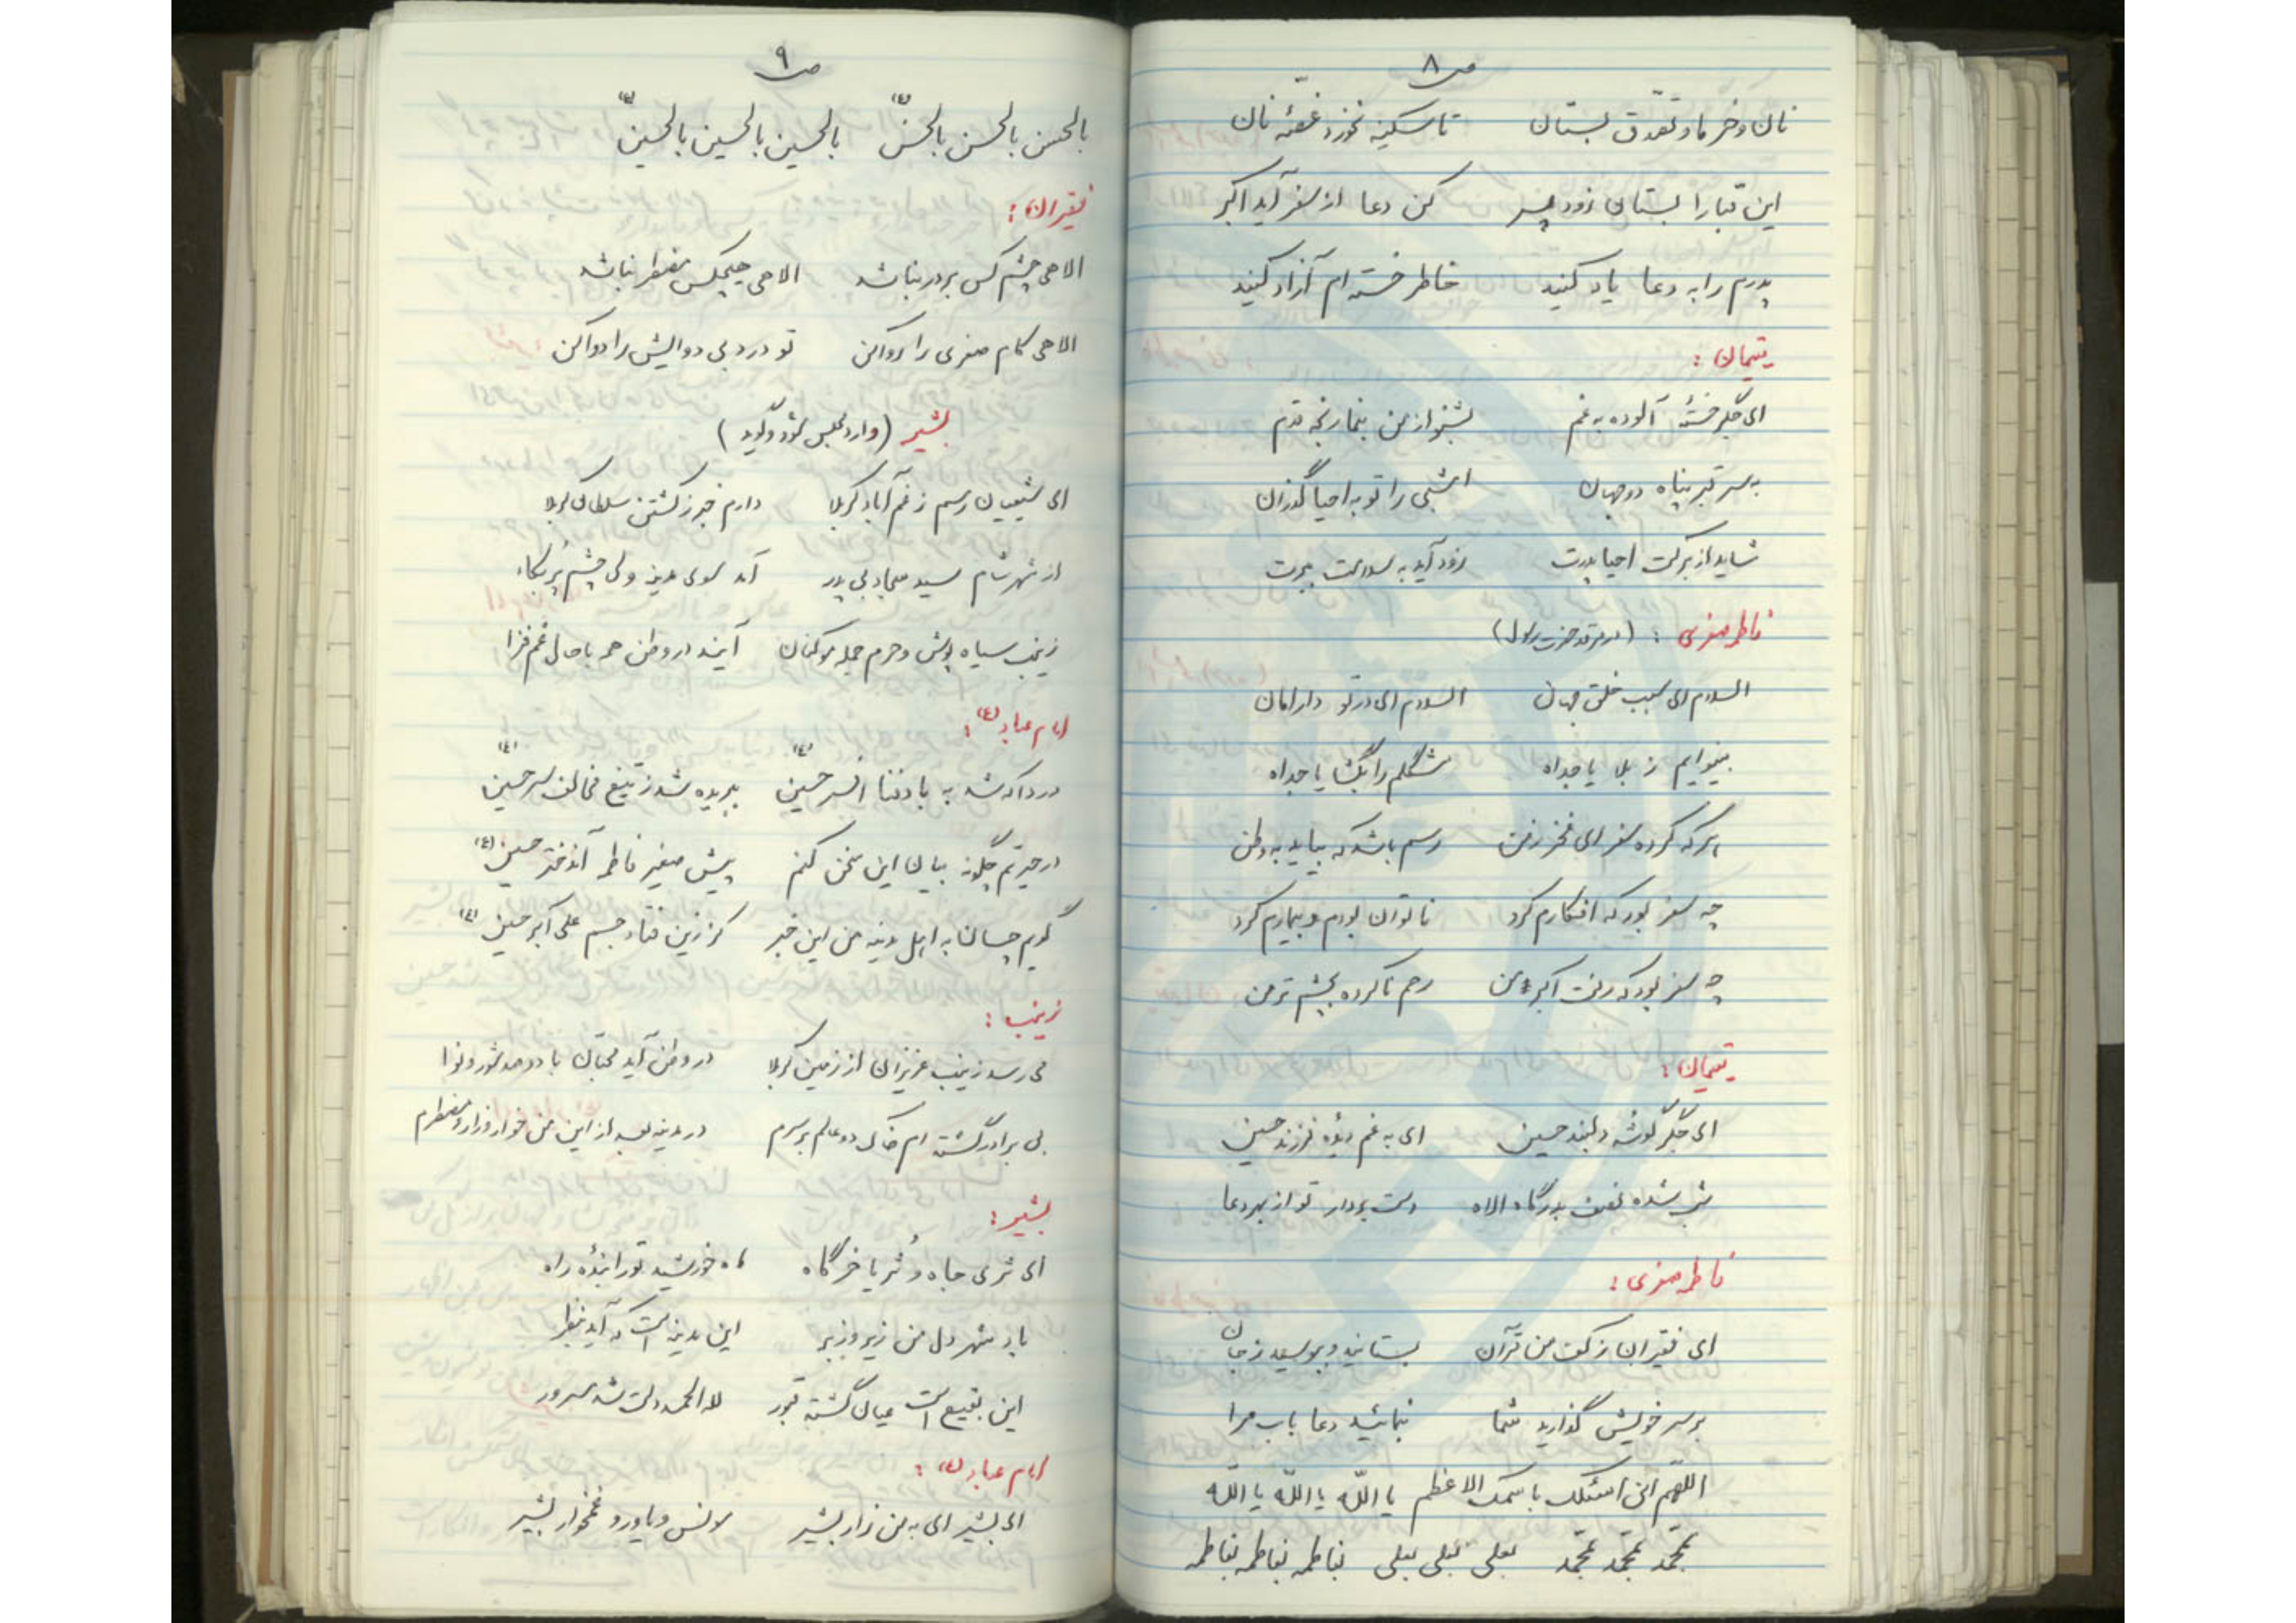 ص ۸
نان و خرما و تصدّق بستان تا سکینه نخورد غصّه نان
این قبا را بستان زود پسر کن دعا از سفر آید اکبر
پدرم را به دعا یاد کنید خاطر خسته ام آزاد کنید
یتیمان :
ای جگر خستهٔ آلوده به غم بشنو از من بنما رنجه قدم
به سر قبر پناه دو جهان امشبی را تو به احیا گذران
شاید از برکت احیا پدرت زود آید به سلامت ببرت
فاطمه صغری : (در مرقد حضرت رسول)
السلام ای سبب خلق جهان السلام ای در تو دارامان
بینوایم ز بلا یا جداه مشکلم را بگشا یا جداه
هر که کرده سفر ای فخر زمن رسم باشد که بیاید به وطن
چه سفر بود که افکارم کرد ناتوان بودم و بیمارم کرد
چه سفر بود که رفت اکبر من رحم ناکرده بچشم تر من
یتیمان :
ای جگر گوشه دلبند حسین ای به غم دیده فرزند حسین
شب شده نصف بدرگاه الاه دست بردار تو از بهر دعا
فاطمه صغری :
ای فقیران ز کف من قرآن بستانید و ببوسید ز جان
بر سر خویش گذارید شما بنمائید دعا باب مرا
اللهم انی اسئلک باسمک الاعظم یا اللّه یا اللّه یا اللّه
بمحمّد بمحمّد بمحمّد بعلی بعلی بعلی بفاطمه بفاطمه بفاطمه
ص ۹
بالحسن بالحسن بالحسن (ع) بالحسین بالحسین بالحسین (ع)
فقیران :
الاهی چشم کس بر در نباشد الاهی هیچکس مضطر نباشد
الاهی کام صغری را روا کن تو درد بی دوایش را دوا کن
بشیر (وارد مجلس شود و گوید)
ای شیعیان رسم ز غم آباد کربلا دارم خبر ز کشتن سلطان کربلا
از شهر شام سید سجاد بی پدر آمد سوی مدینه ولی چشم پُر بکاء
زینب سیاه پوش و حرم جمله مو کنان آیند در وطن همه با حال غم فزا
امام عباد (ع) :
دردا که شد به باد فنا افسر حسین (ع) ببریده شد ز تیغ مخالف سر حسین (ع)
در حیرتم چگونه بیان این سخن کنم پیش صغیر فاطمه آن دختر حسین (ع)
گویم چسان به اهل مدینه من این خبر کز زین فتاد جسم علی اکبر حسین (ع)
زینب :
می رسد زینب عزیزان از زمین کربلا در وطن آید محبّان با دو صد شور و نوا
بی برادر گشته ام خاک دو عالم بر سرم در مدینه بعد از این من خوار و زار و مضطرم
بشیر :
ای ثری جاه و ثُریا خرگاه ماه خورشید تو را بندهٔ راه
باد شهر دل من زیر و زبر این مدینه است که آید بنظر
این بقیع است عیان گشته قبور لله الحمد دلت شد مسرور
امام عباد (ع) :
ای بشیر ای به من زار بشیر مونس و یاور و غمخوار بشیر